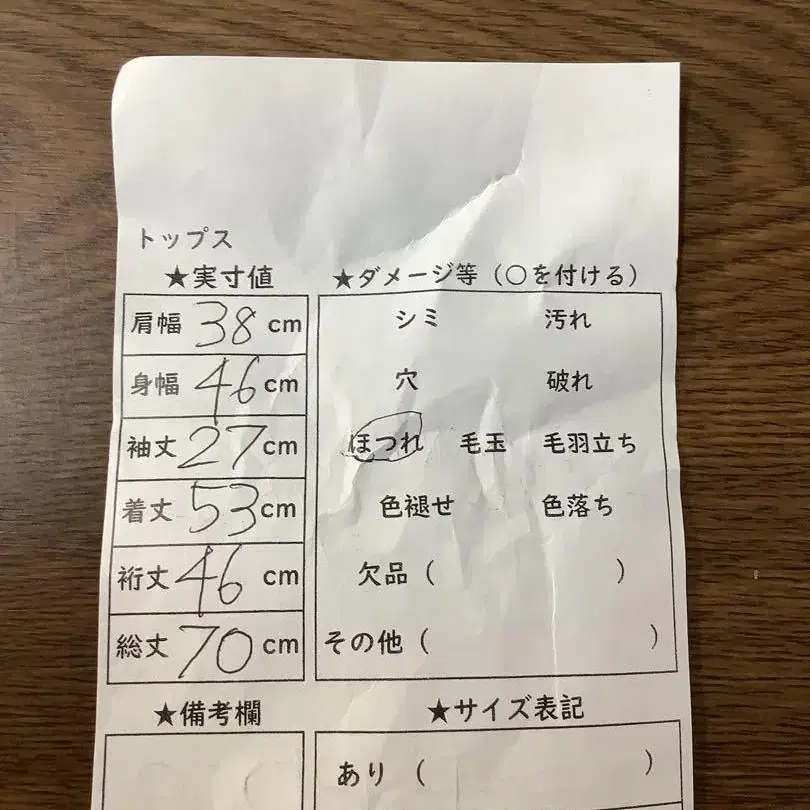 トップス
★実寸値
肩幅 38 cm
身幅 46 cm
袖丈 27 cm
着丈 53 cm
裄丈 46 cm
総丈 70 cm
★ダメージ等（○を付ける）
シミ 汚れ
穴 破れ
ほつれ 毛玉 毛羽立ち
色褪せ 色落ち
欠品（ ）
その他（ ）
★備考欄
★サイズ表記
あり（ ）